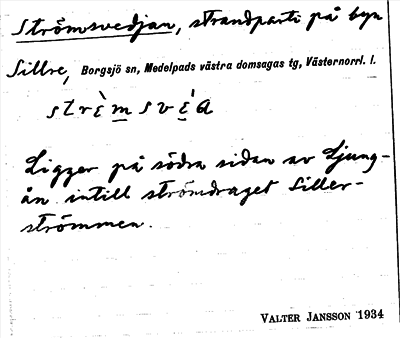 Strömsvedjan, strandparti på byn
Sillre, Borgsjö sn, Medelpads västra domsagas tg, Västernorrl. l.
strè̀m své̀a
Ligger på södra sidan av Ljung-
ån intill strömdraget Siller-
strömmen.
VALTER JANSSON 1934